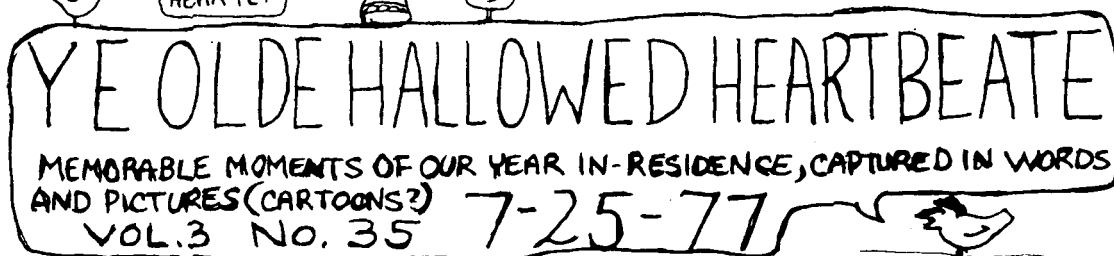 YE OLDE HALLOWED HEARTBEATE
MEMORABLE MOMENTS OF OUR YEAR IN-RESIDENCE, CAPTURED IN WORDS
AND PICTURES (CARTOONS?) 7-25-77
VOL.3 NO. 35